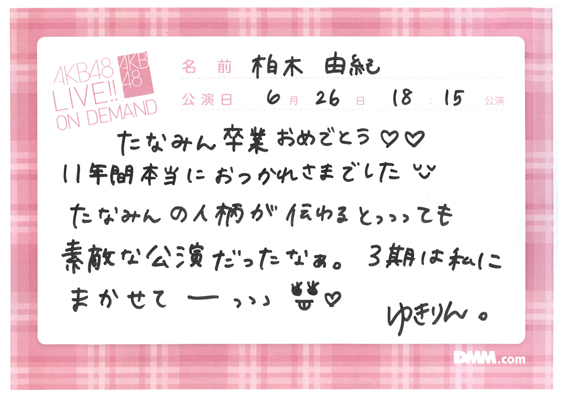 AKB48
LIVE!!
ON DEMAND
AKB
48
名前 柏木 由紀
公演日 6月26日 18:15公演
たなみん卒業おめでとう♡♡
11年間本当におつかれさまでした
たなみんの人柄が伝わるとっっっても
素敵な公演だったなぁ。3期は私に
まかせてーっっっ♡
ゆきりん。
DMM.com